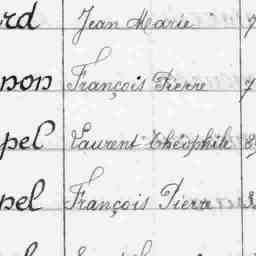 rd Jean Marie 7
non François Pierre 7
pel Laurent Théophile
pel François Pierre